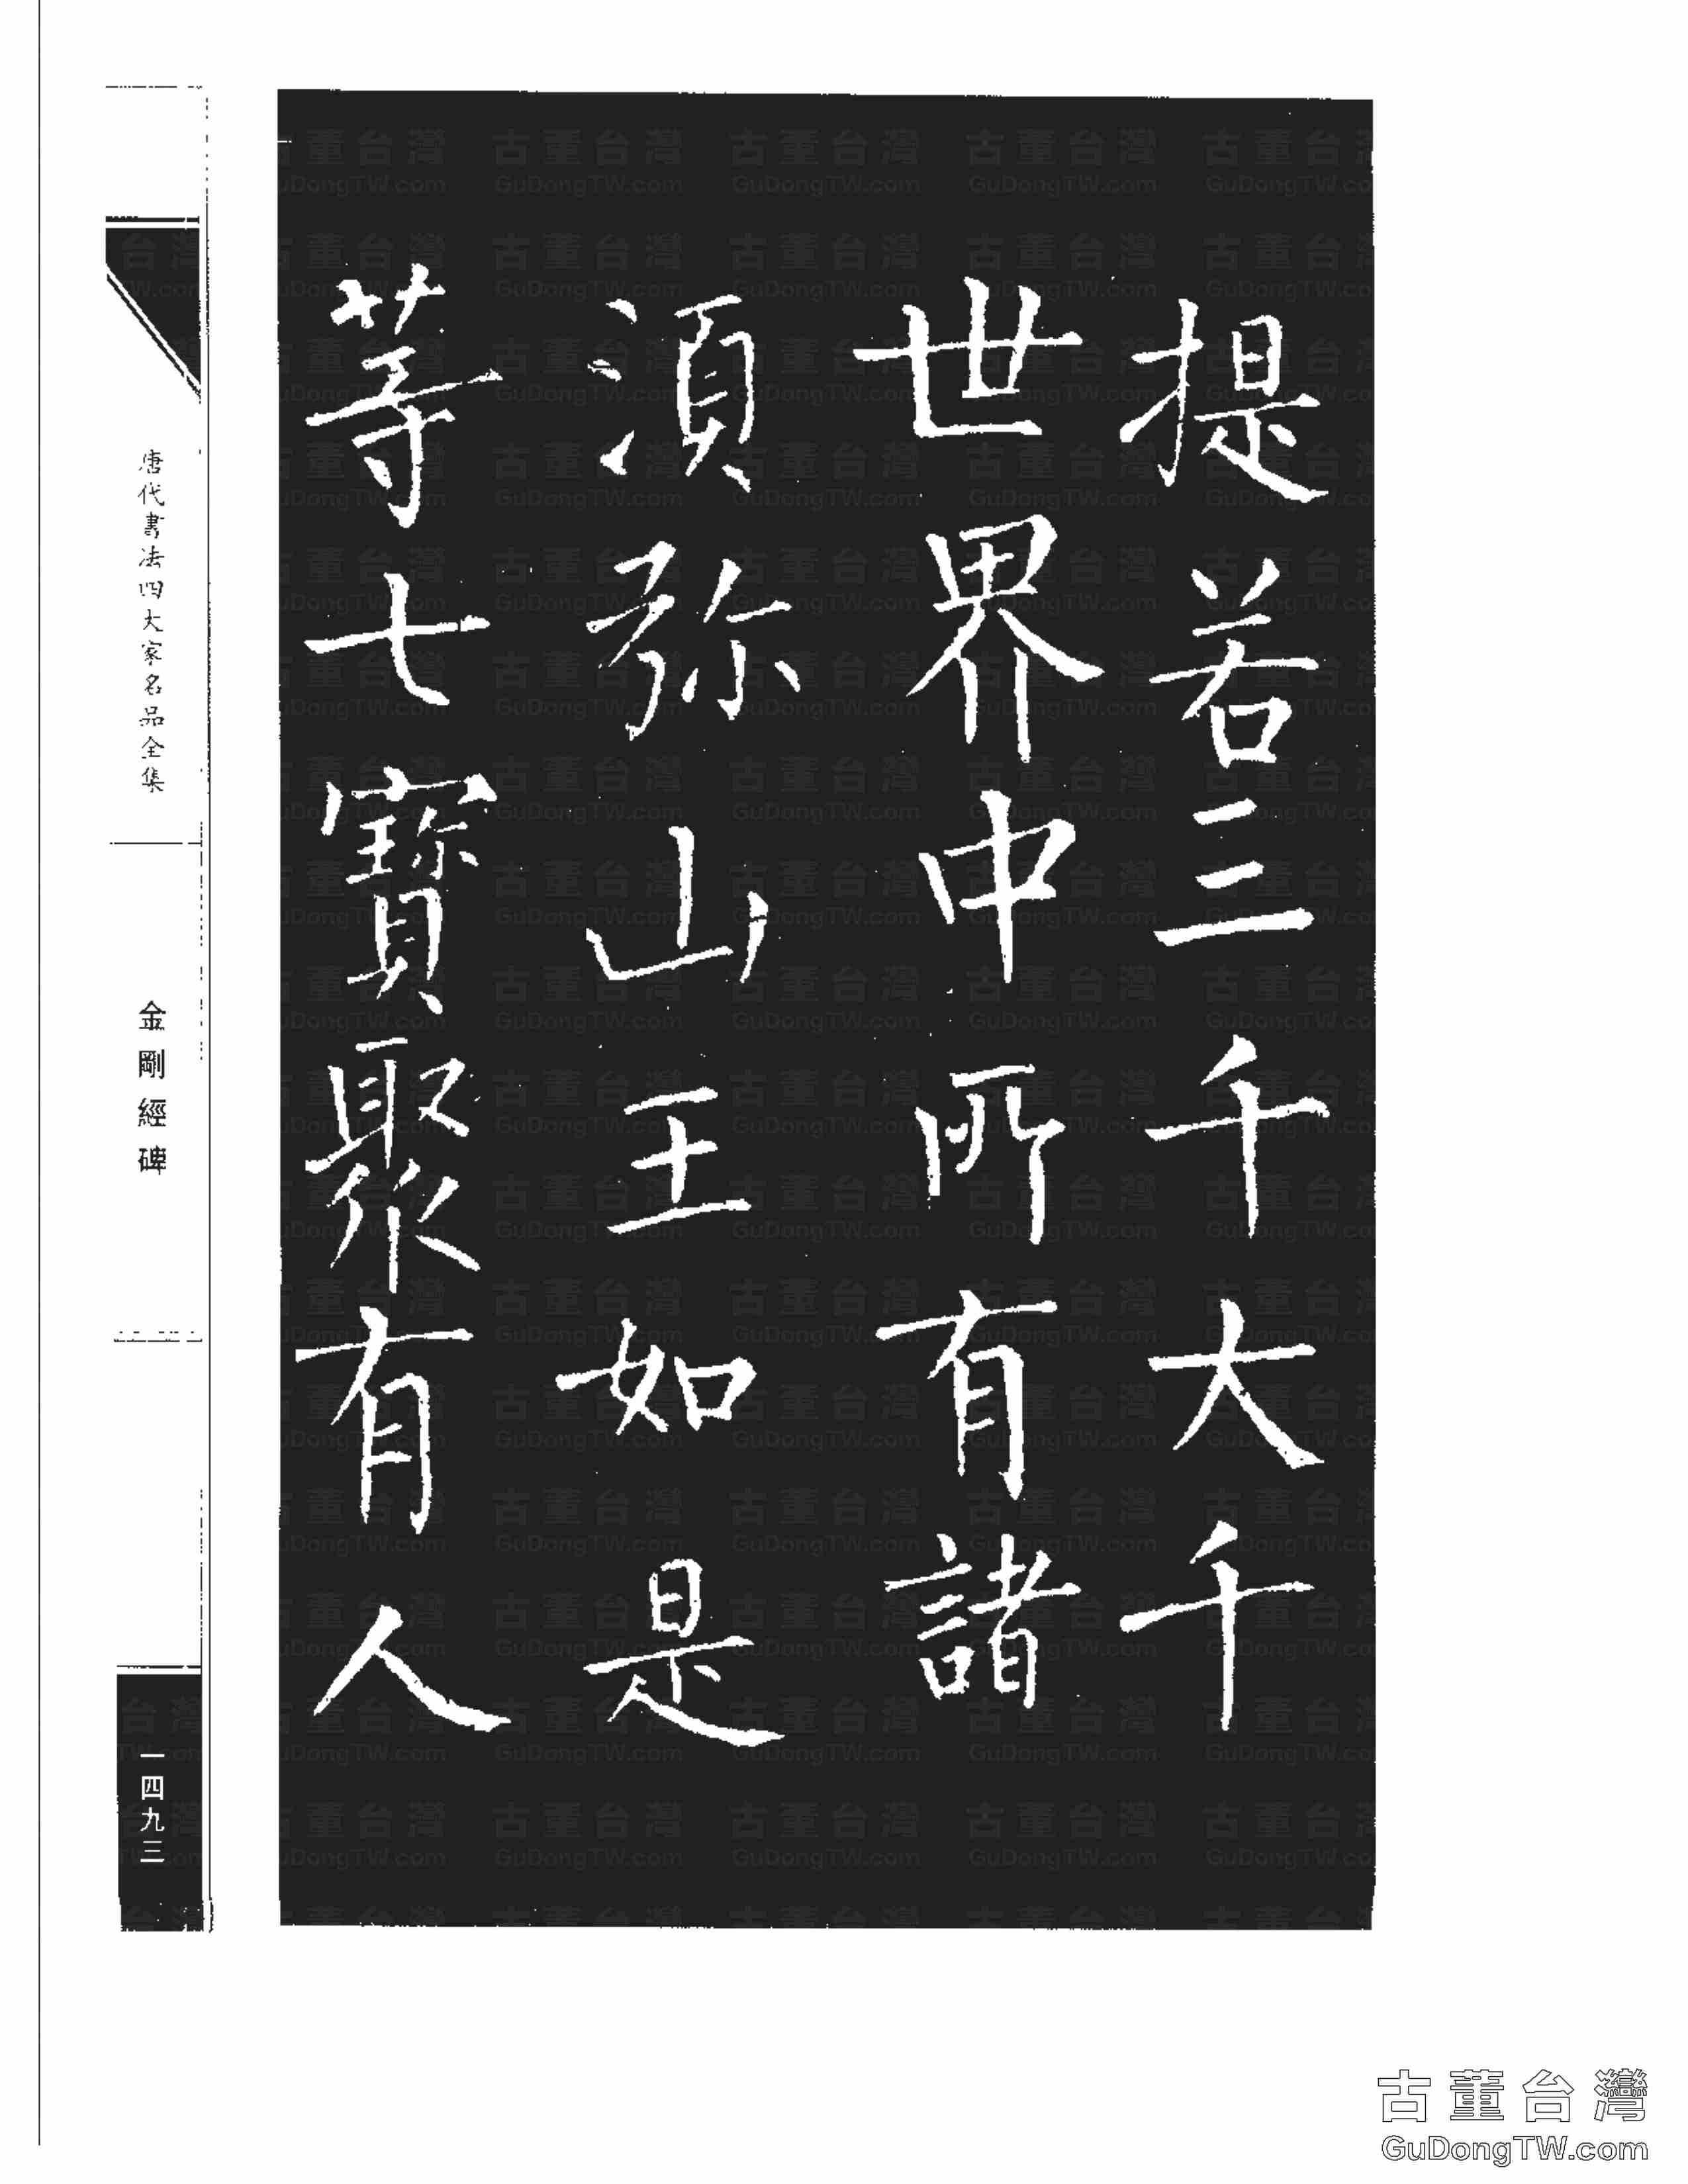 提若三千大千
世界中所有諸
湏弥山王如是
等七寶聚有人
唐代書法四大家名品全集
金剛經碑
一四九三
古董台灣
GuDongTW.com